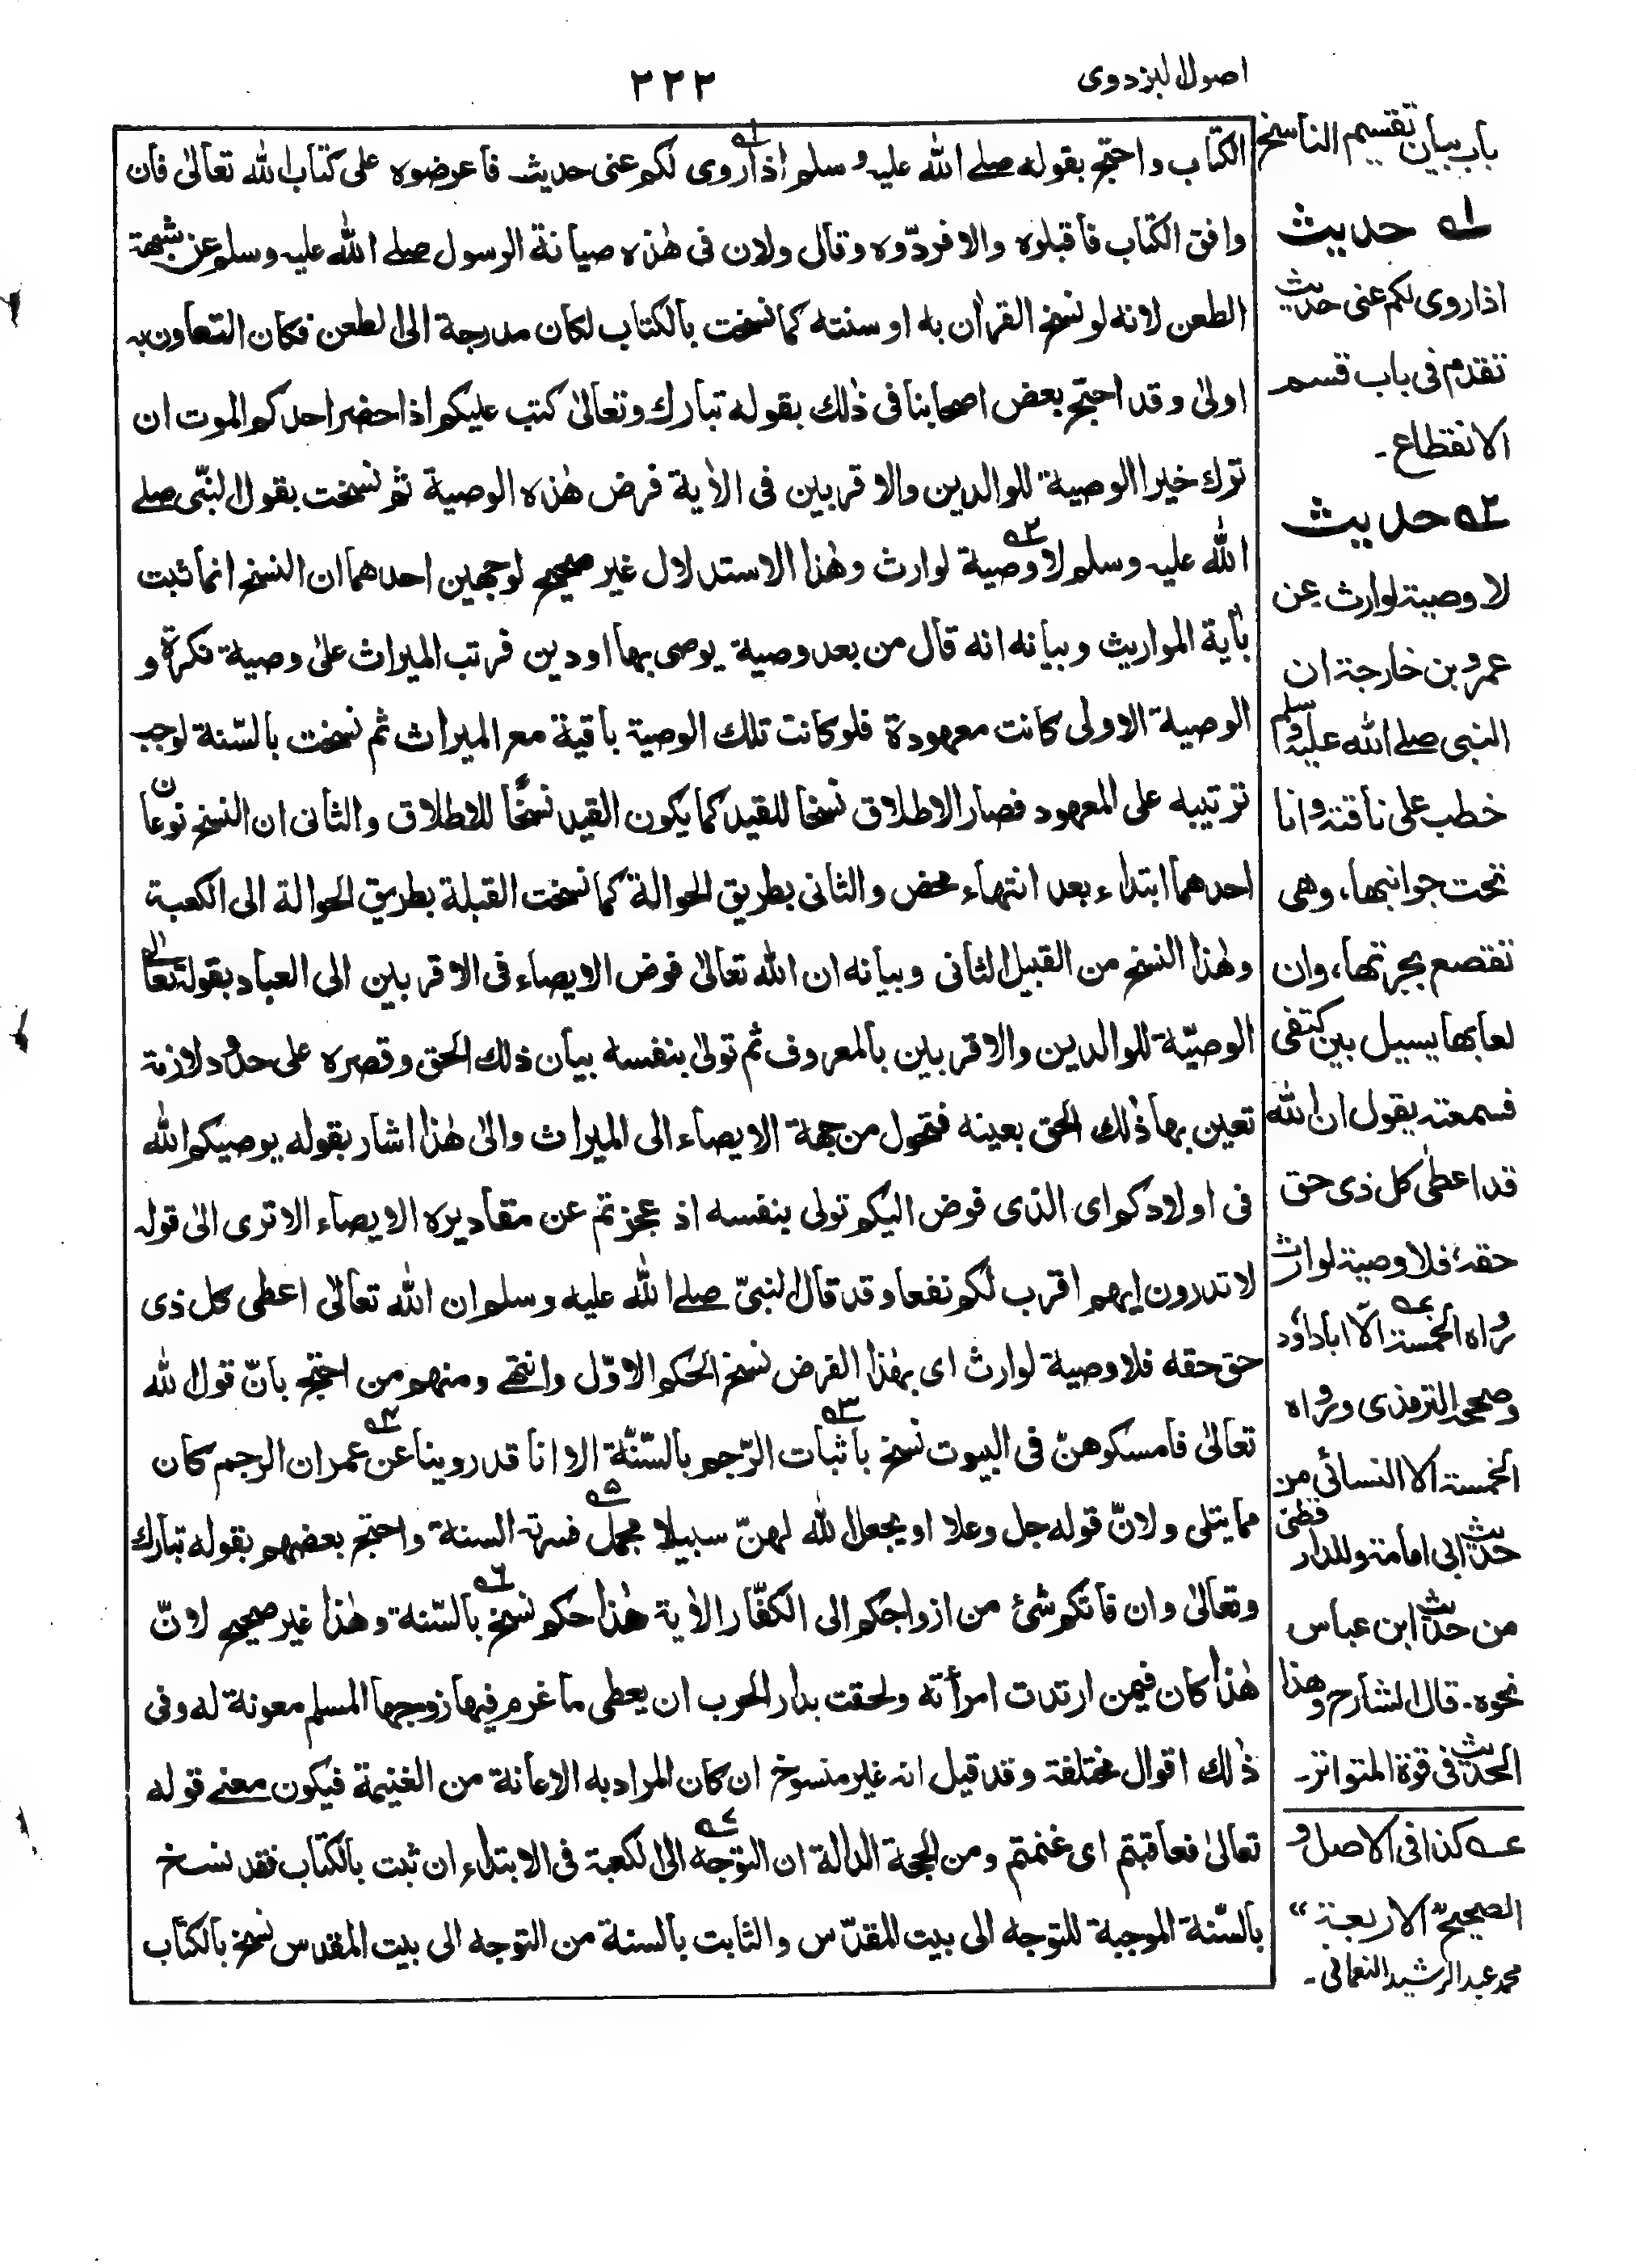 اصول البزدوی
٢٢٢
باب بیان تقسیم الناسخ
الکتاب واحتج بقوله صلے الله علیه وسلم اذا روی لکم عنی حدیث فاعرضوه علی کتاب الله تعالیٰ فان
وافق الکتاب فاقبلوه والا فردّوه وقال ولان فی هٰذه صیانة الرسول صلے الله علیه وسلم عن شبهة
الطعن لانه لو نسخ القراٰن به او سنته کما نسخت بالکتاب لکان مدرجة الی الطعن فکان التعاون به
اولیٰ وقد احتج بعض اصحابنا فی ذٰلك بقوله تبارك وتعالیٰ کتب علیکم اذا حضر احدکم الموت ان
ترك خیرا الوصیة للوالدین والاقربین فی الاٰیة فرض هٰذه الوصیة ثم نسخت بقول النبّی صلے
الله علیه وسلم لا وصیة لوارث وهٰذا الاستدلال غیر صحیح لوجهین احدهما ان النسخ انما ثبت
باٰیة المواریث وبیانه انه قال من بعد وصیة یوصی بها او دین فرتب المیراث علیٰ وصیة نکرة و
الوصیة الاولی کانت معهودة فلو کانت تلك الوصیة باقیة مع المیراث ثم نسخت بالسّنة لوجب
ترتیبه علی المعهود فصار الاطلاق نسخا للقید کما یکون القید نسخًا للاطلاق والثانی ان النسخ نوعان
احدهما ابتداء بعد انتهاء محض والثانی بطریق الحوالة کما نسخت القبلة بطریق الحوالة الی الکعبة
وهٰذا النسخ من القبیل الثانی وبیانه ان الله تعالیٰ فوض الایصاء فی الاقربین الی العباد بقوله تعالیٰ
الوصیّة للوالدین والاقربین بالمعروف ثم تولیٰ بنفسه بیان ذٰلك الحق وقصره علی حدود لازمة
تعین بها ذٰلك الحق بعینه فتحول من جهة الایصاء الی المیراث والیٰ هٰذا اشار بقوله یوصیکم الله
فی اولادکم ای الذی فوض الیکم تولی بنفسه اذ عجزتم عن مقادیره الایصاء الا تری الیٰ قوله
لا تدرون ایهم اقرب لکم نفعا وقد قال النبیّ صلے الله علیه وسلم ان الله تعالیٰ اعطی کل ذی
حق حقه فلا وصیة لوارث ای بهٰذا الفرض نسخ الحکم الاوّل وانتهے ومنهم من احتج بانّ قول الله
تعالیٰ فامسکوهنّ فی البیوت نسخ باثبات الرّجم بالسّنّة الا انا قد روینا عن عمر ان الرجم کان
مما یتلی ولانّ قوله جل وعلا او یجعل الله لهنّ سبیلا مجمل فسرته السنة واحتج بعضهم بقوله تبارك
وتعالیٰ وان فاتکم شئ من ازواجکم الی الکفّار الاٰیة هٰذا حکم نسخ بالسّنة وهٰذا غیر صحیح لانّ
هٰذا کان فیمن ارتدت امرأته ولحقت بدار الحرب ان یعطی ما غرم فیها زوجها المسلم معونة له وفی
ذٰلك اقوال مختلفة وقد قیل انه غیر منسوخ ان کان المراد به الاعانة من الغنیمة فیکون معنے قوله
تعالیٰ فعاقبتم ای غنمتم ومن الحجة الدالة ان التوجه الی الکعبة فی الابتداء ان ثبت بالکتاب فقد نسخ
بالسّنة الموجبة للتوجه الی بیت المقدّس والثابت بالسنة من التوجه الی بیت المقدس نسخ بالکتاب
١ـه حدیث
اذا روی لکم عنی حدیث
تقدم فی باب قسم
الانقطاع۔
٢ـه حدیث
لا وصیة لوارث عن
عمرو بن خارجة ان
النبی صلے الله علیه وسلم
خطب علی ناقته وانا
تحت جرانها، وهی
تقصع بجرتها، وان
لعابها یسیل بین کتفی
فسمعته یقول ان الله
قد اعطیٰ کل ذی حق
حقه، فلا وصیة لوارث
رواه الخمسة الّا اباداؤد
وصححه الترمذی ورواه
الخمسة الا النسائی من
حدیث ابی امامة وللدارقطنی
من حدیث ابن عباس
نحوه۔ قال الشارح وهذا
الحدیث فی قوة المتواتر۔
عـه کذا فی الاصل و
الصحیح "الاربعة"
محمد عبد الرشید النعمانی۔